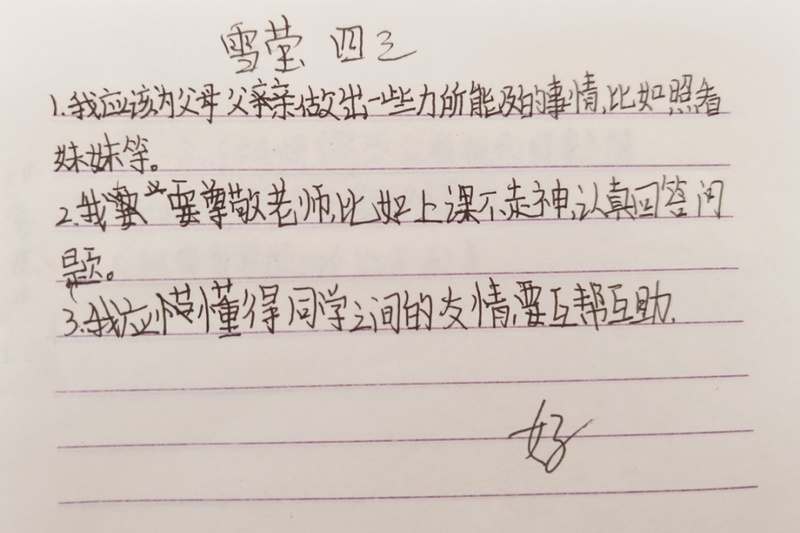 雪莹 四3
1.我应该为父母父亲做出一些力所能及的事情,比如照看
妹妹等。
2.我要尊敬老师,比如上课不走神,认真回答问
题。
3.我应懂得同学之间的友情,要互帮互助.
好